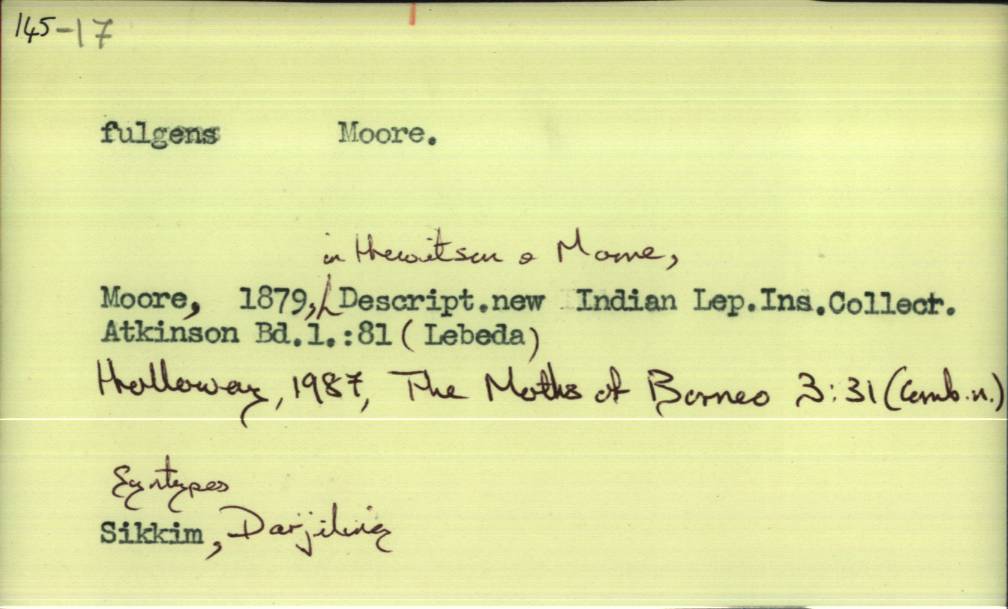 145-17
fulgens Moore.
in Hewitson & Moore,
Moore, 1879, Descript.new Indian Lep.Ins.Collect.
Atkinson Bd.1.:81 (Lebeda)
Holloway, 1987, The Moths of Borneo 3:31 (Comb.n.)
Syntypes
Sikkim, Darjiling